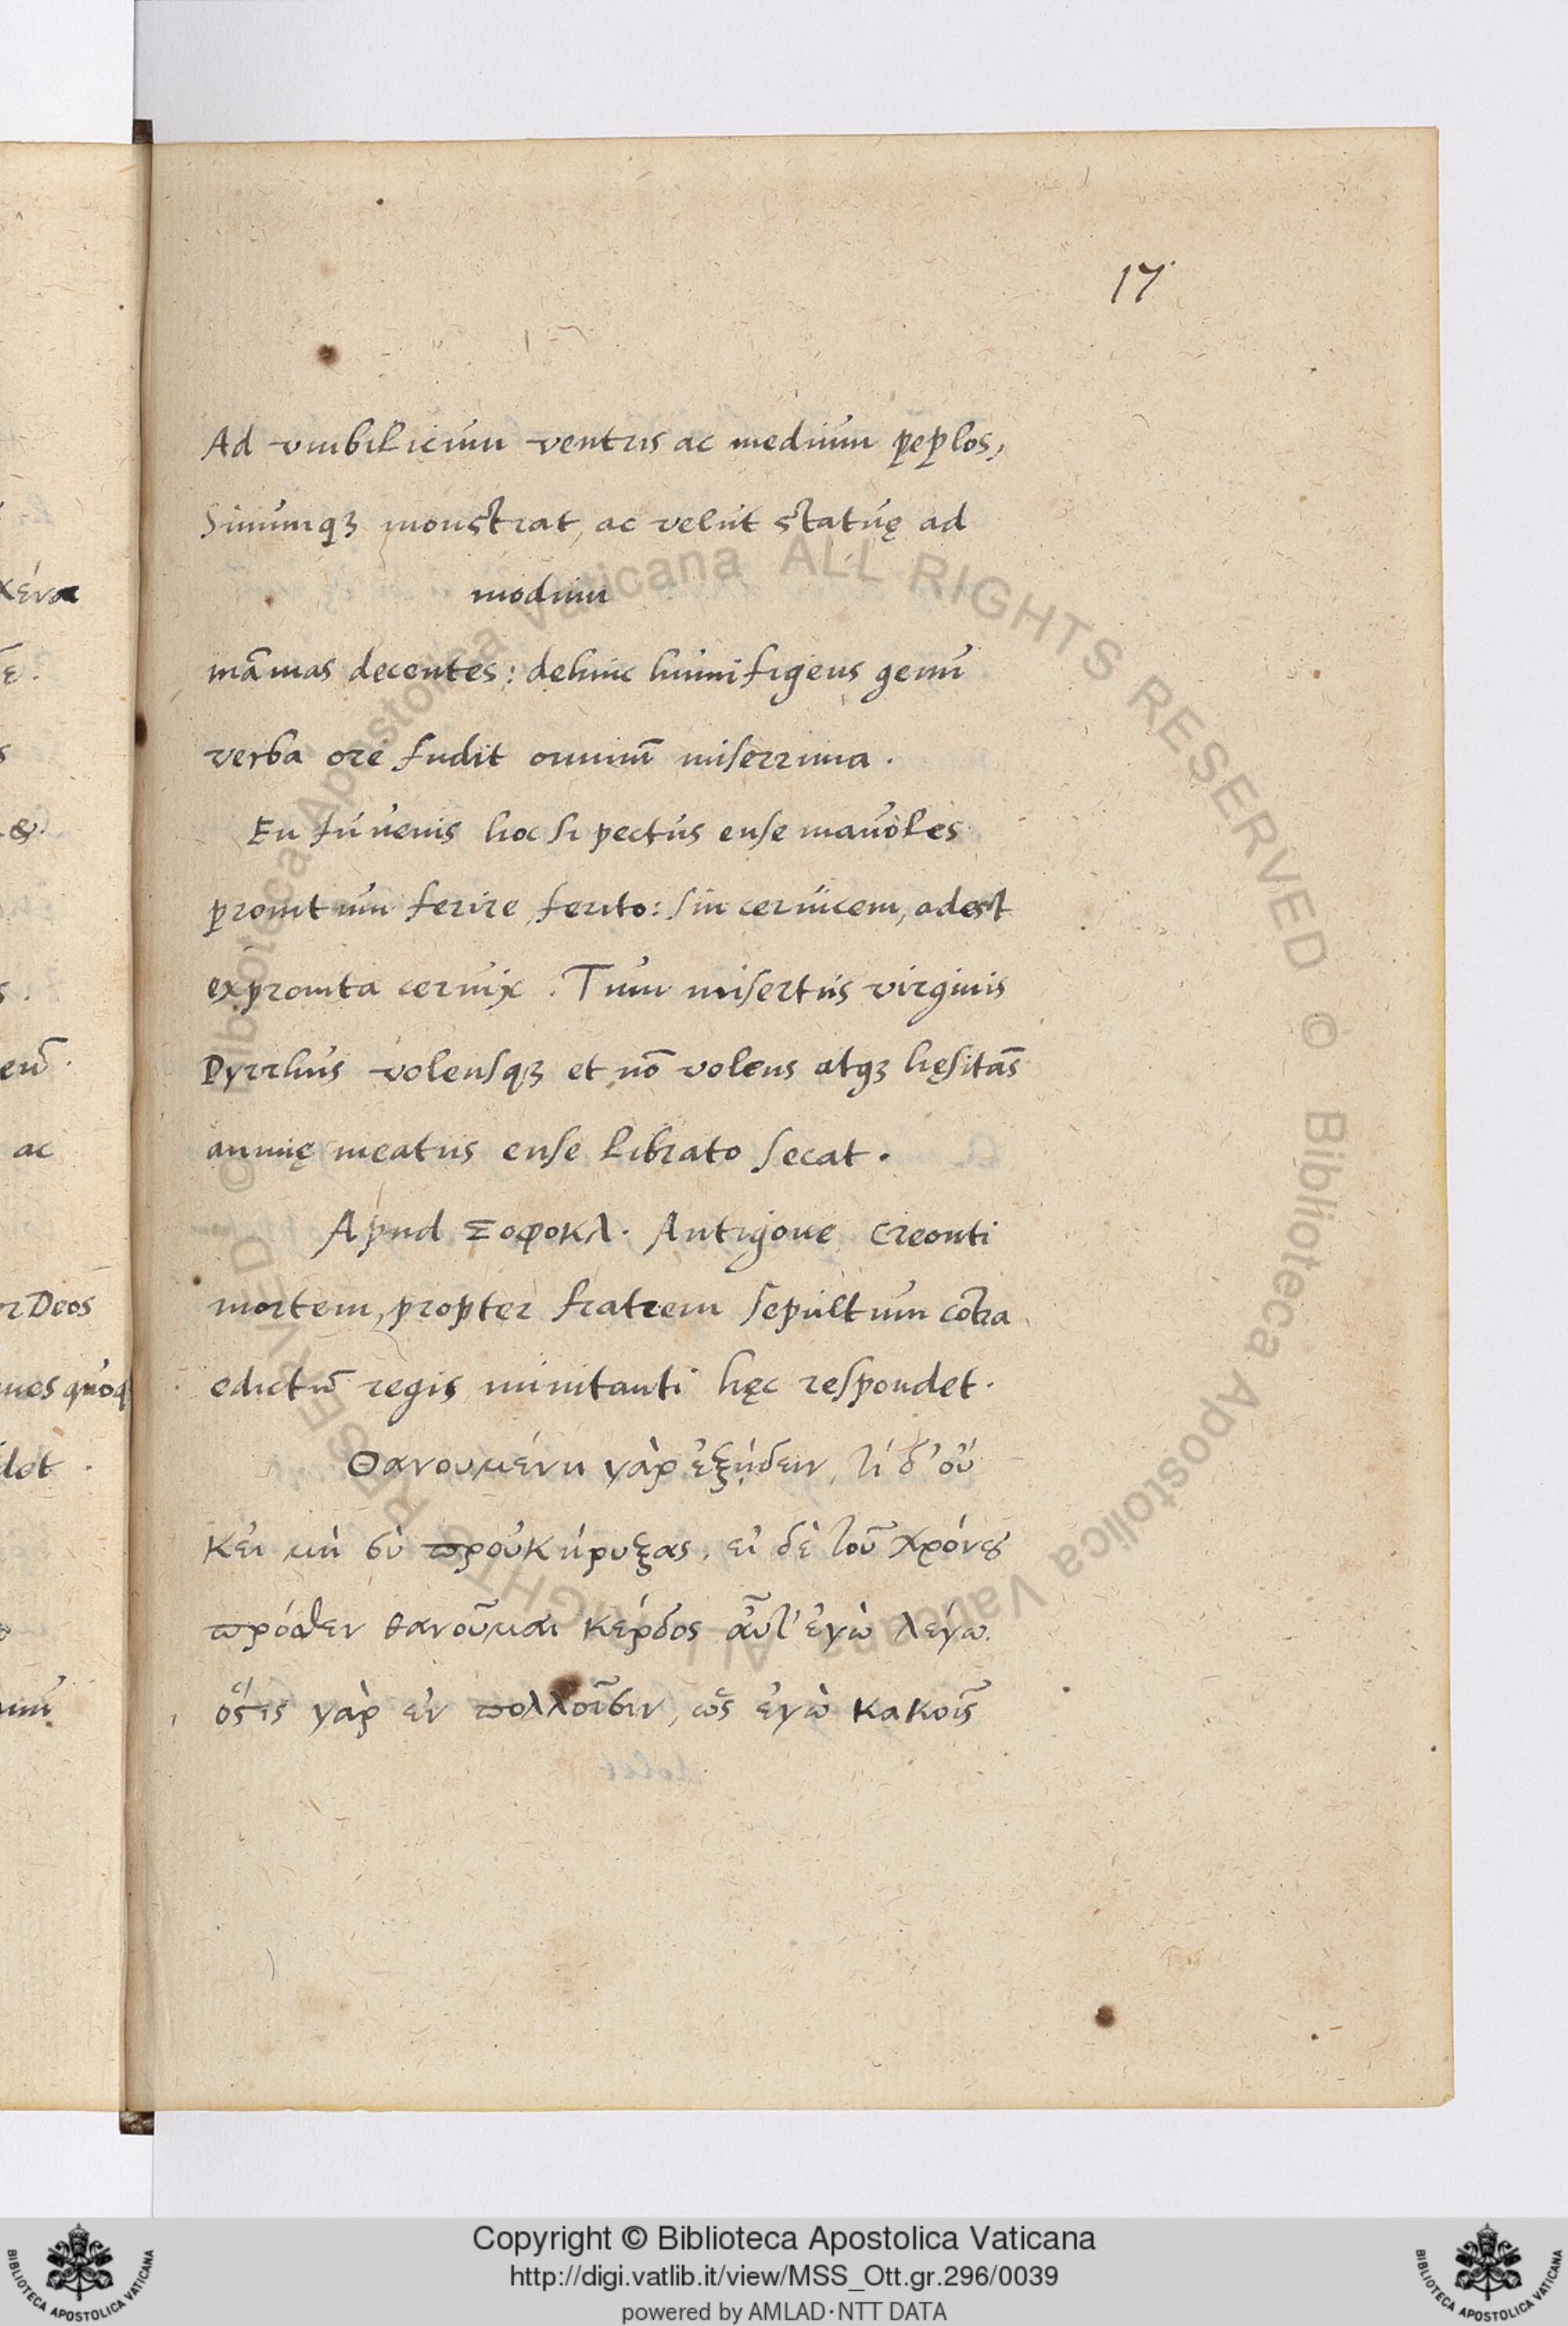 17
Ad vmbilicum ventris ac medium peplos,
Sinumqȝ monstrat, ac velut statuę ad
modum
mãmas decentes: dehinc humi figens genu
verba ore fudit omniũ miserrima.
En Iuuenis hoc si pectus ense mauoles
promtum ferire, ferito: sin ceruicem, adest
expromta ceruix. Tum misertus virginis
Pyrrhus volensqȝ et nõ volens atqȝ hęsitãs
animę meatus ense librato secat.
Apud Σοφοκλ. Antigone Creonti
mortem, propter fratrem sepultum cõtra
edictũ regis minitanti hęc respondet.
Θανουμένη γὰρ ἐξῄδειν, τί δ' οὔ
κεἰ μὴ σὺ προὐκήρυξας, εἰ δὲ τοῦ χρόνȣ
πρόσθεν θανοῦμαι κέρδος αὖτ' ἐγὼ λέγω.
ὅςτις γὰρ ἐν πολλοῖσιν, ὡς ἐγὼ κακοῖς
χένα
or Deos
ac
Copyright © Biblioteca Apostolica Vaticana
http://digi.vatlib.it/view/MSS_Ott.gr.296/0039
powered by AMLAD·NTT DATA
BIBLIOTECA APOSTOLICA VATICANA
BIBLIOTECA APOSTOLICA VATICANA